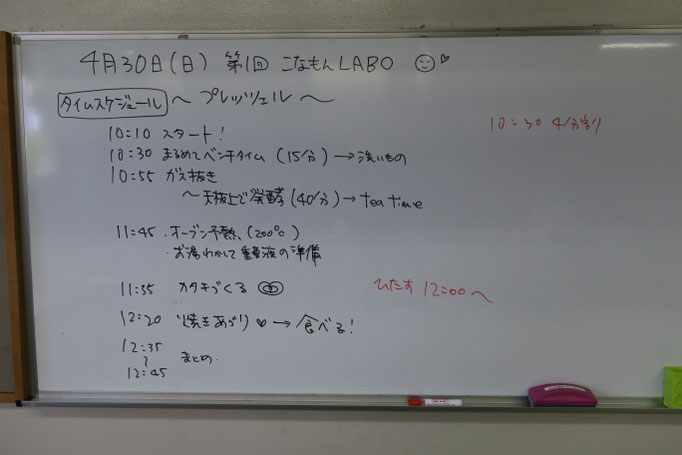 4月30日(日) 第1回 こなもんLABO
タイムスケジュール 〜プレッツェル〜
10:10 スタート!
10:30 まるめてベンチタイム (15分) → 洗いもの
10:55 ガス抜き
〜天板上で発酵 (40分) → tea time
11:45 ・オーブン予熱 (200℃)
・お湯わかして重曹液の準備
11:55 カタチづくる
12:20 焼きあがり♡ → 食べる!
12:35
〜
12:45 まとめ.
10:30 4分割
ひたす 12:00〜